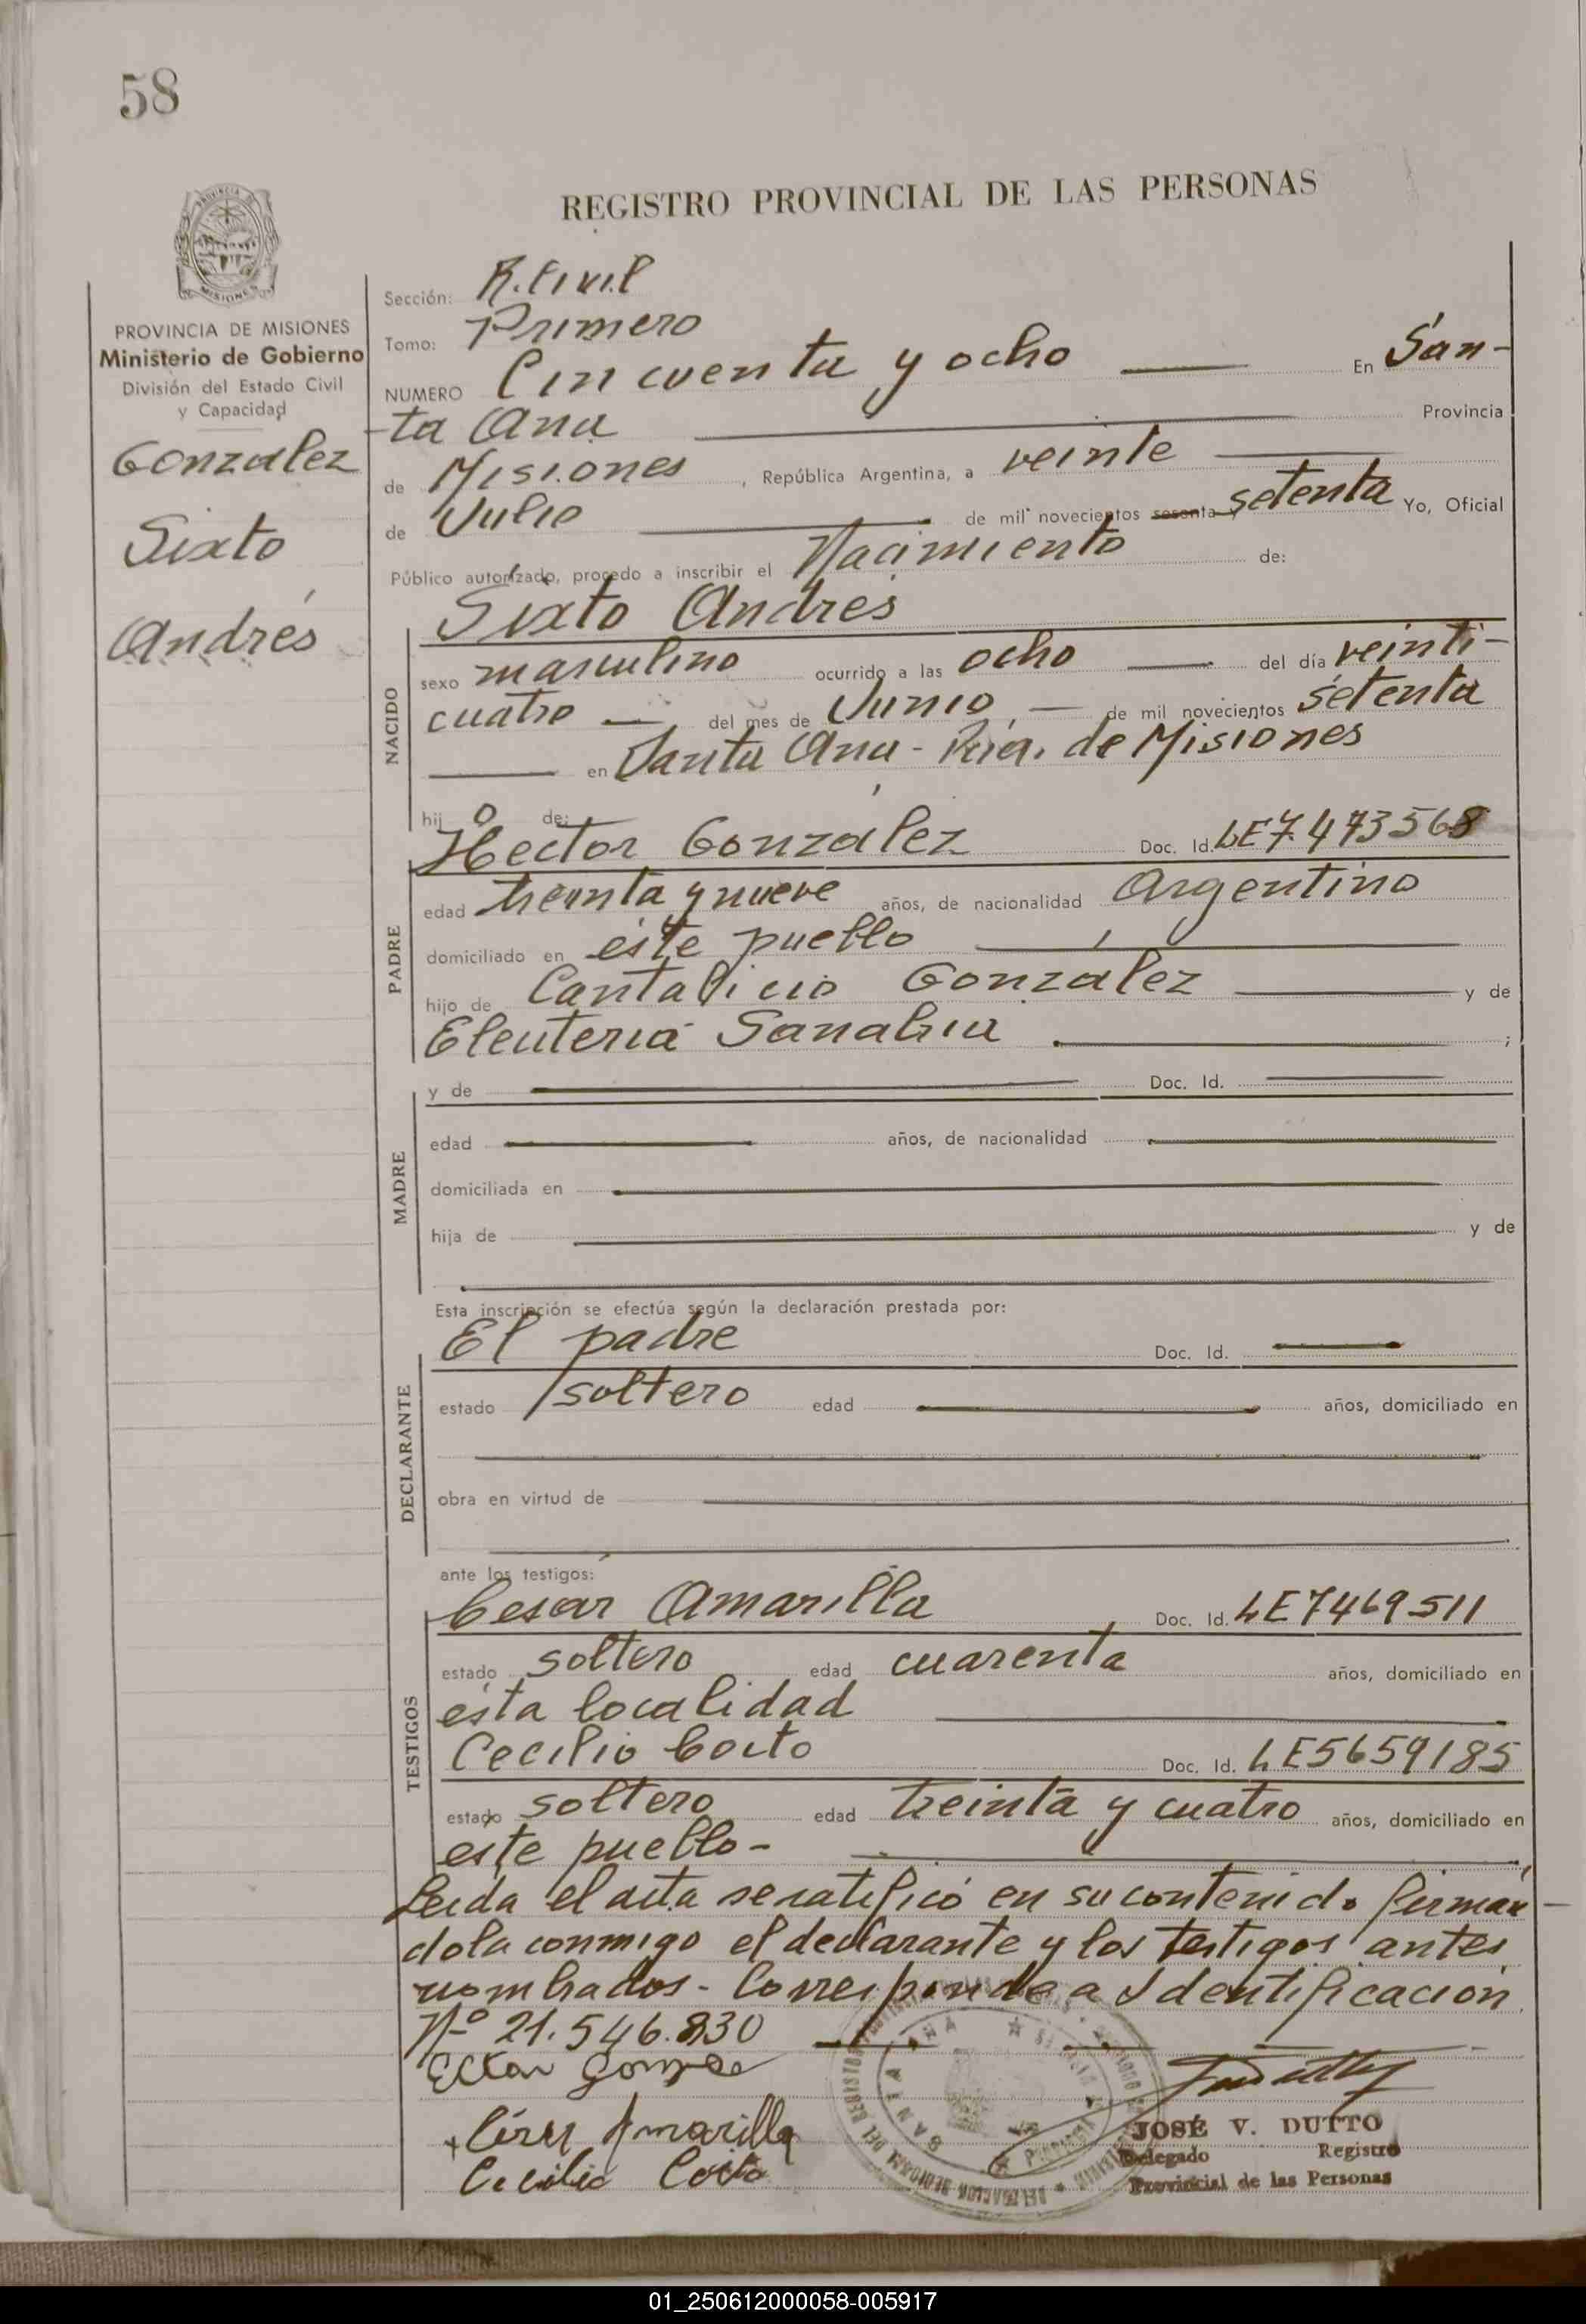 58
REGISTRO PROVINCIAL DE LAS PERSONAS
PROVINCIA
MISIONES
PROVINCIA DE MISIONES
Ministerio de Gobierno
División del Estado Civil
y Capacidad
Gonzalez
Sixto
Andrés
Sección: R. Civil
Tomo: Primero
NUMERO Cincuenta y ocho En San-
ta Ana Provincia
de Misiones, República Argentina, a veinte
de Julio de mil novecientos sesenta y setenta Yo, Oficial
Público autorizado, procedo a inscribir el Nacimiento de:
NACIDO
Sixto Andrés
sexo masculino ocurrido a las ocho del día veinti-
cuatro del mes de Junio de mil novecientos setenta
en Santa Ana - Pcia. de Misiones
hijo de:
PADRE
Hector González Doc. Id. LE 7.473568
edad treinta y nueve años, de nacionalidad Argentino
domiciliado en éste pueblo
hijo de Cantalicio González y de
Eleuteria Sanabria ;
MADRE
y de Doc. Id.
edad años, de nacionalidad
domiciliada en
hija de y de
Esta inscripción se efectúa según la declaración prestada por:
DECLARANTE
El padre Doc. Id.
estado soltero edad años, domiciliado en
obra en virtud de
ante los testigos:
TESTIGOS
Cesar Amarilla Doc. Id. LE7469511
estado soltero edad cuarenta años, domiciliado en
ésta localidad
Cecilio Coito Doc. Id. LE5659185
estado soltero edad treinta y cuatro años, domiciliado en
este pueblo -
Leida el acta se ratificó en su contenido firman
dola conmigo el declarante y los testigos antes
nombrados - Corresponde a Identificación
Nº 21.546.830
Ector
Amarilla
Cecilio
SANTA ANA
JOSÉ V. DUTTO
Delegado Registro
Provincial de las Personas
01_250612000058-005917